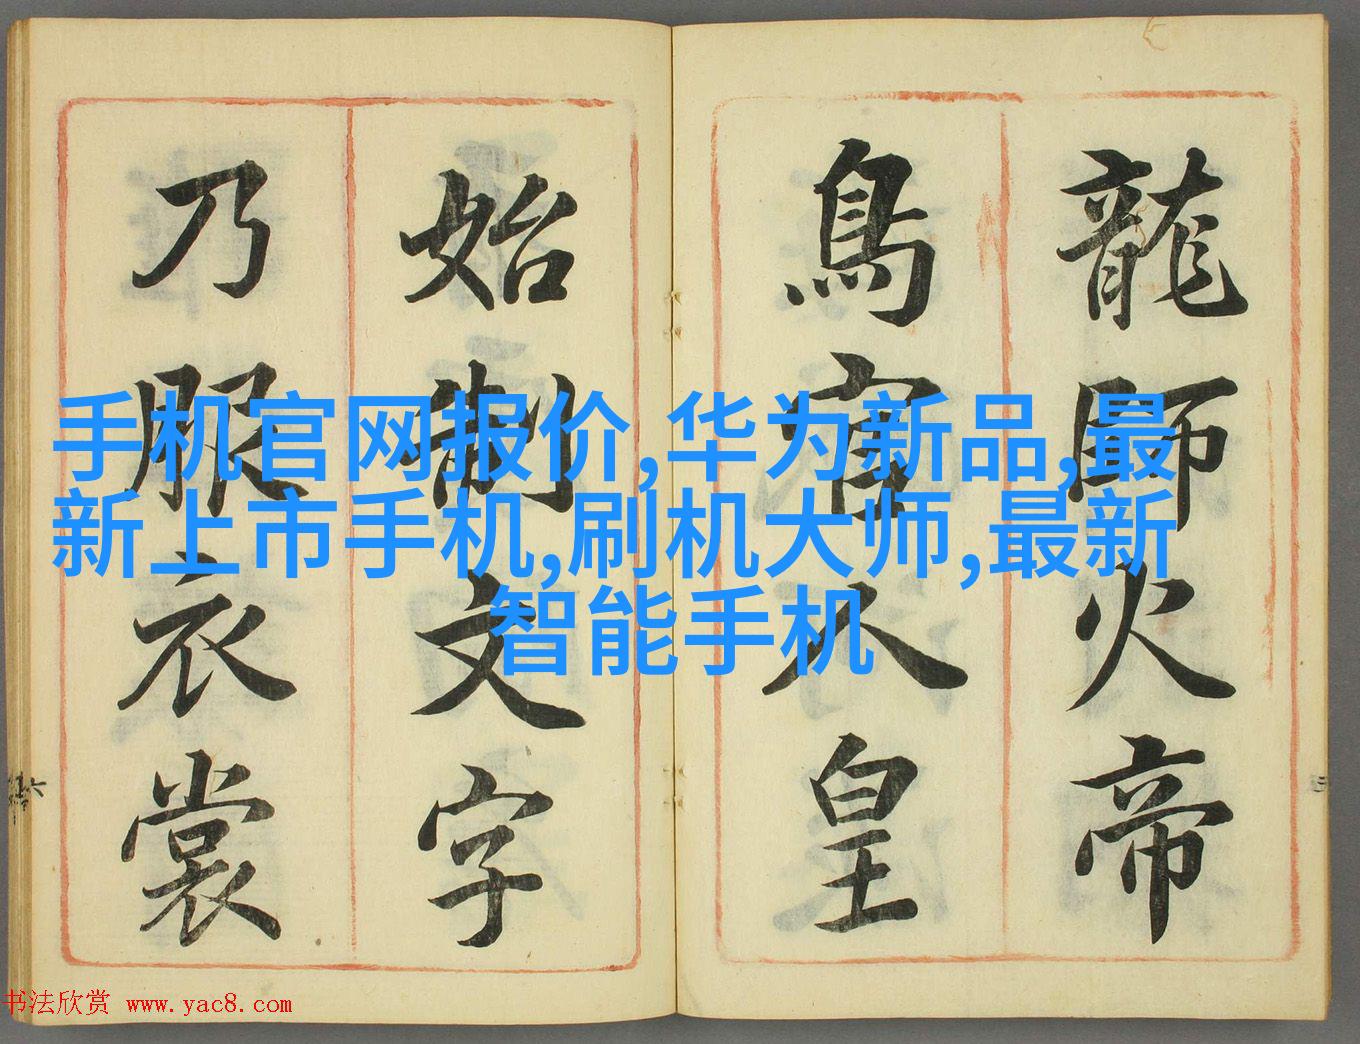 龍師火帝
鳥官人皇
始制文字
乃服衣裳
手机官网报价,华为新品,最
新上市手机,刷机大师,最新
智能手机
书法欣赏 www.yac8.com